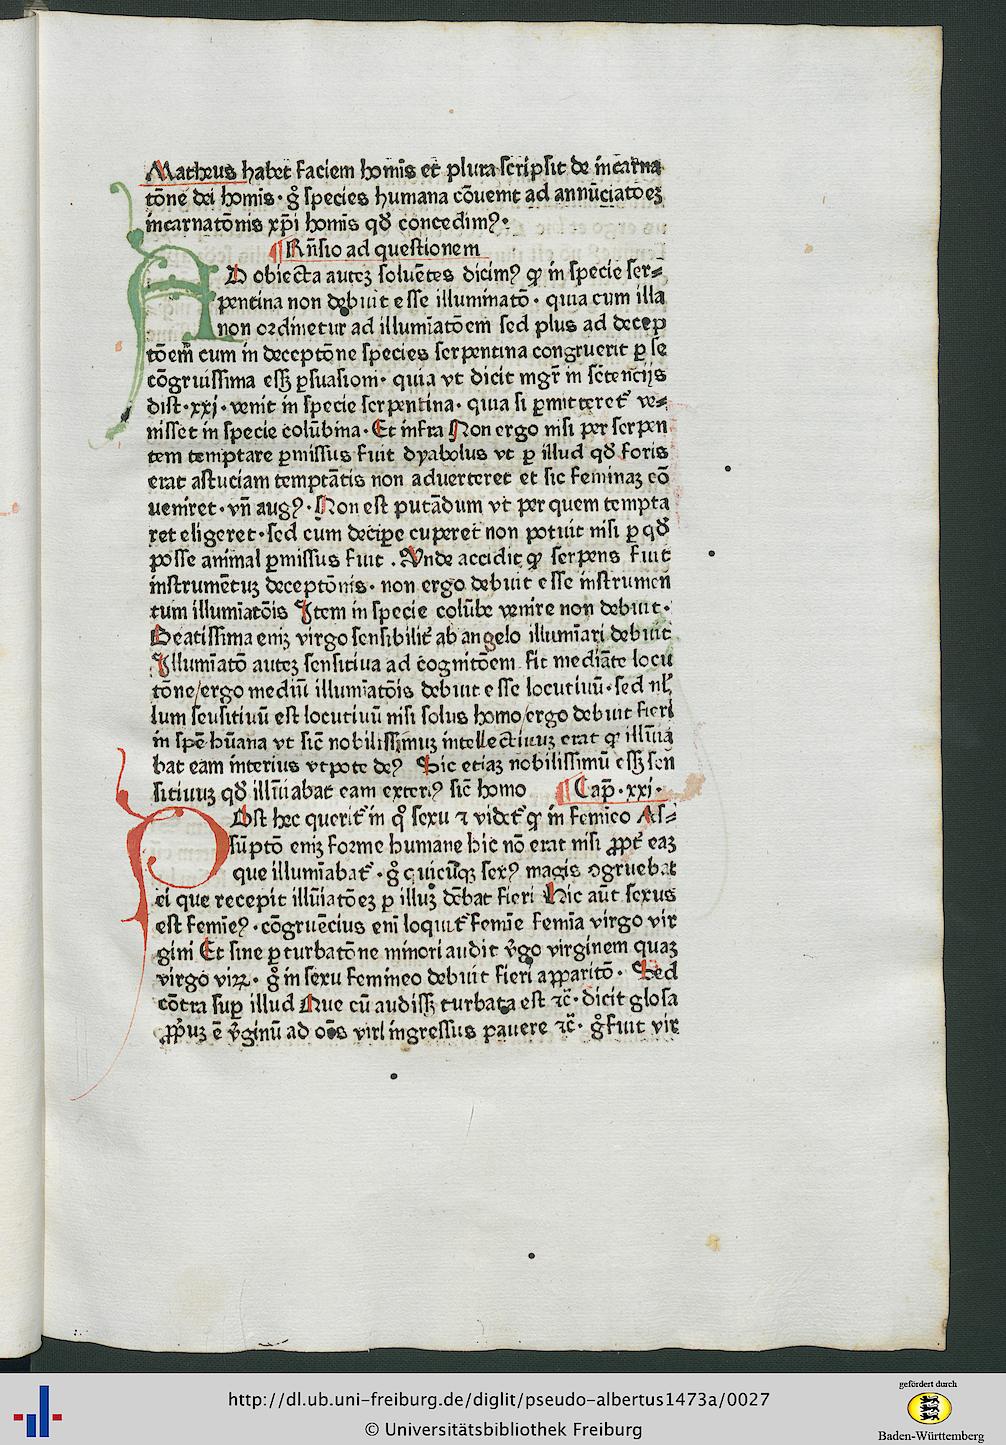 Matheus habet faciem homīs et plura scripsit de incarna
tōne dei homīs · g̊ species humana cōuenit ad annūciatoeꝫ
incarnatōnis xp̄i homīs qđ concedimꝰ ·
¶ Rn̄sio ad questionem
AD obiecta auteꝫ soluētes dicimꝰ ꝙ in specie ser⸗
pentina non debuit esse illuminatō · quia cum illa
non ordinetur ad illumīatōem sed plus ad decep
tōem cum in deceptōne species serpentina congruerit ꝑ se
cōgruissima essꝫ ꝑsuasioni · quia vt dicit mgr̄ in sētencijs
dist · xxj · venit in specie serpentina · quia si ꝑmitteret᷑ ve⸗
nisset in specie colūbina · Et infra Non ergo nisi per serpen
tem temptare ꝑmissus fuit dyabolus vt ꝑ illud qđ foris
erat astuciam temptātis non aduerteret et sic feminaꝫ cō
ueniret · vn̄ augꝰ · Non est putādum vt per quem tempta
ret eligeret · sed cum decipe cuperet non potuit nisi ꝑ qđ
posse animal ꝑmissus fuit . Unde accidit ꝙ serpens fuit
instrumētuꝫ deceptōnis · non ergo debuit esse instrumen
tum illumīatōis Item in specie colūbe venire non debuit ·
Beatissima eniꝫ virgo sensibilit᷑ ab angelo illumīari debuit
Illumīatō auteꝫ sensitiua ad cognitōem fit mediāte locu
tōne/ergo mediū illumīatōis debuit esse locutiuū · sed nĺ
lum sensitiuū est locutiuū nisi solus homo/ergo debuit fieri
in spē hūana vt sic̄ nobilissimuꝫ intellectiuuꝫ erat ꝙ illūīa
bat eam interius vtpote deꝰ Sic etiaꝫ nobilissimū essꝫ sen
sitiuuꝫ qđ illūīabat eam exteriꝰ sic̄ homo ¶ Cap̄ · xxi ·
POst hec querit᷑ in q̊ sexu ⁊ videt᷑ ꝙ in femīeo As⸗
sūptō eniꝫ forme humane hic nō erat nisi ꝓpt᷑ eaꝫ
que illumīabat᷑ · g̊ cuicūqꝫ sexꝰ magis ꝯgruebat
ei que recepit illūīatōeꝫ ꝑ illuꝫ dēbat fieri Hic aūt sexus
est femīeꝰ · cōgruēcius eni loquit᷑ femīe femīa virgo vir
gini Et sine ꝑturbatōne minori audit v̓go virginem quaꝫ
virgo viꝝ · g̊ in sexu femineo debuit fieri apparitō · Sed
cōtra suꝑ illud Que cū audissꝫ turbata est ⁊c̄ · dicit glosa
ꝓp̓uꝫ ē v̓ginū ad oēs viri ingressus pauere ⁊c̄ · g̊ fuit vir
http://dl.ub.uni-freiburg.de/diglit/pseudo-albertus1473a/0027
© Universitätsbibliothek Freiburg
gefördert durch
Baden-Württemberg